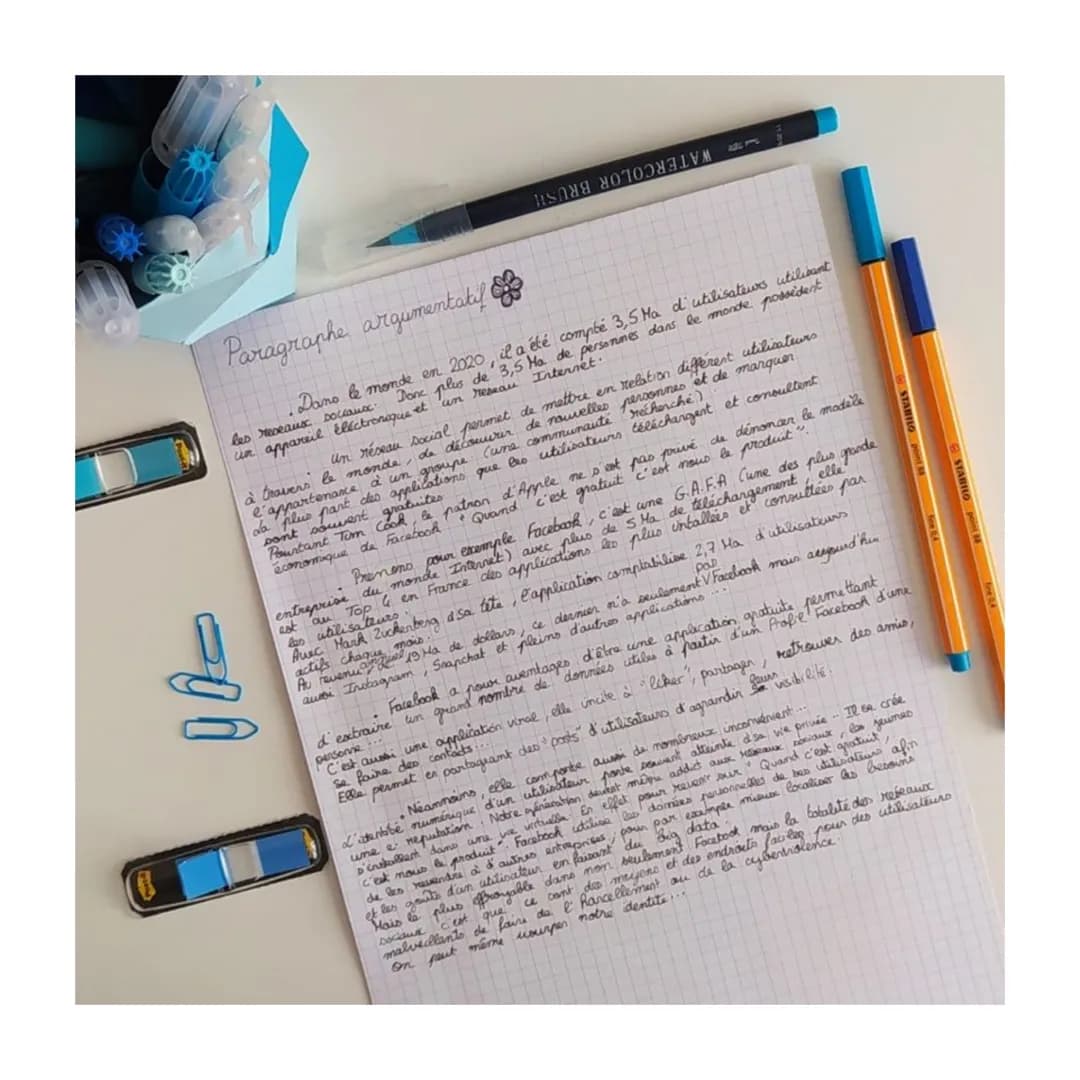 WATERCOLOR BRUSH
Paragraphe argumentatif
. Dans le monde en 2020, il a été compté 3,5 Ma d'utilisateurs utilisant
les reseaux sociaux. Donc plus de 3,5 Ma de personnes dans le monde possèdent
un appareil éléctronique et un reseau Internet.
. Un réseau social permet de mettre en relation différent utilisateurs
à travers le monde, de découvrir de nouvelles personnes et de marquer
l'appartenance à un groupe (une communauté recherché)
La plus part des applications que les utilisateurs téléchargent et consultent
sont souvent gratuites
Pourtant Tim Cook, le patron d'Apple ne s'est pas privé de dénoncer le modèle
économique de Facebook "Quand c'est gratuit c'est nous le produit".
. Prenons pour exemple Facebook, c'est une G.A.F.A (une des plus grande
entreprise du monde Internet) avec plus de 5 Ma de téléchargement, elle
est au Top 4 en France des applications les plus intallées et consultées par
les utilisateurs.
Avec Mark Zuckenberg à sa tête, l'application comptabilise 2,7 Ma d'utilisateurs
actifs chaque mois.
Au revenu annuel de 19 Ma de dollars, ce dernier n'a seulement V pas Facebook mais aujourd'hui
aussi Instagram, Snapchat et pleins d'autres applications ...
. Facebook a pour aventages d'être une application gratuite permettant
d'extraire un grand nombre de données utiles à partir d'un Profil Facebook d'une
personne ...
C'est aussi une application viral, elle incite à "liker", partager, retrouver des amis,
se faire des contacts...
Elle permet en partageant des "posts" d'utilisateurs d'agrandir leurs visibilité.
. Néanmoins, elle comporte aussi de nombreux inconvénient...
L'identité numérique d'un utilisateur porte souvent atteinte à sa vie privée .. Il se crée
une e-reputation. Notre génération devient même addict aux réseaux sociaux, les jeunes
s'installent dans une vie virtuelle. En effet pour revenir sur "Quand c'est gratuit,
c'est nous le produit", Facebook utilise les données personnelles de ses utilisateurs afin
de les revendre à d'autres entreprises, pour par exemple mieux localiser les besoins
et les goûts d'un utilisateur en faisant du Big data.
Mais le plus effroyable dans non seulement Facebook mais la totalité des reseaux
sociaux c'est que ce sont des moyens et des endroits faciles pour des utilisateurs
malveillants de faire de l'Harcellement ou de la cyberviolence
On peut même usurper notre identité...
STABILO point 88 fine 0,4
STABILO point 88 fine 0,4
Post-it
Post-it